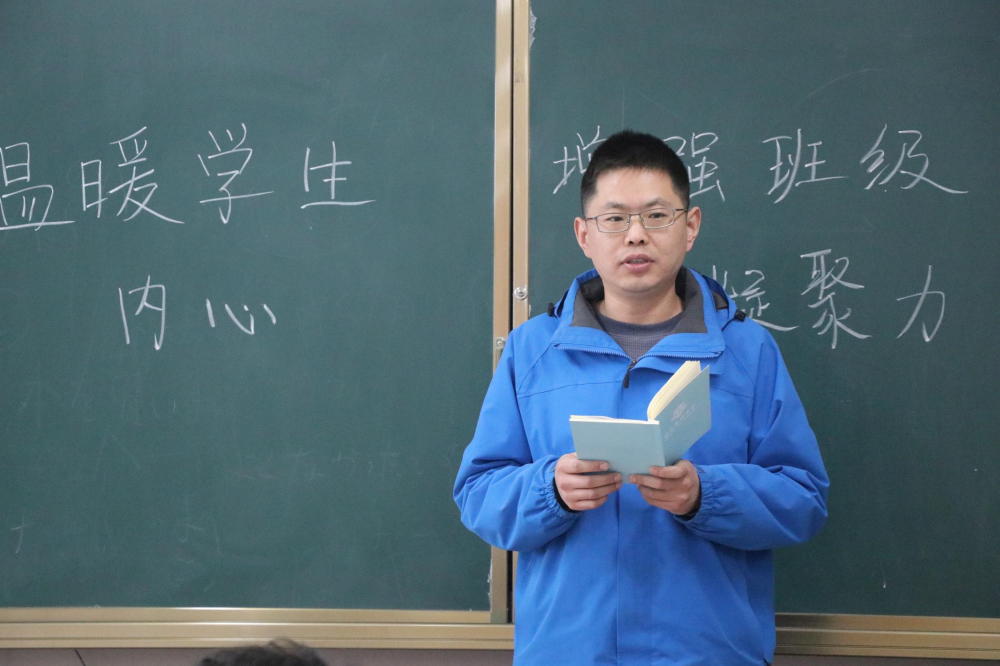 温暖学生
内心
增强班级
凝聚力